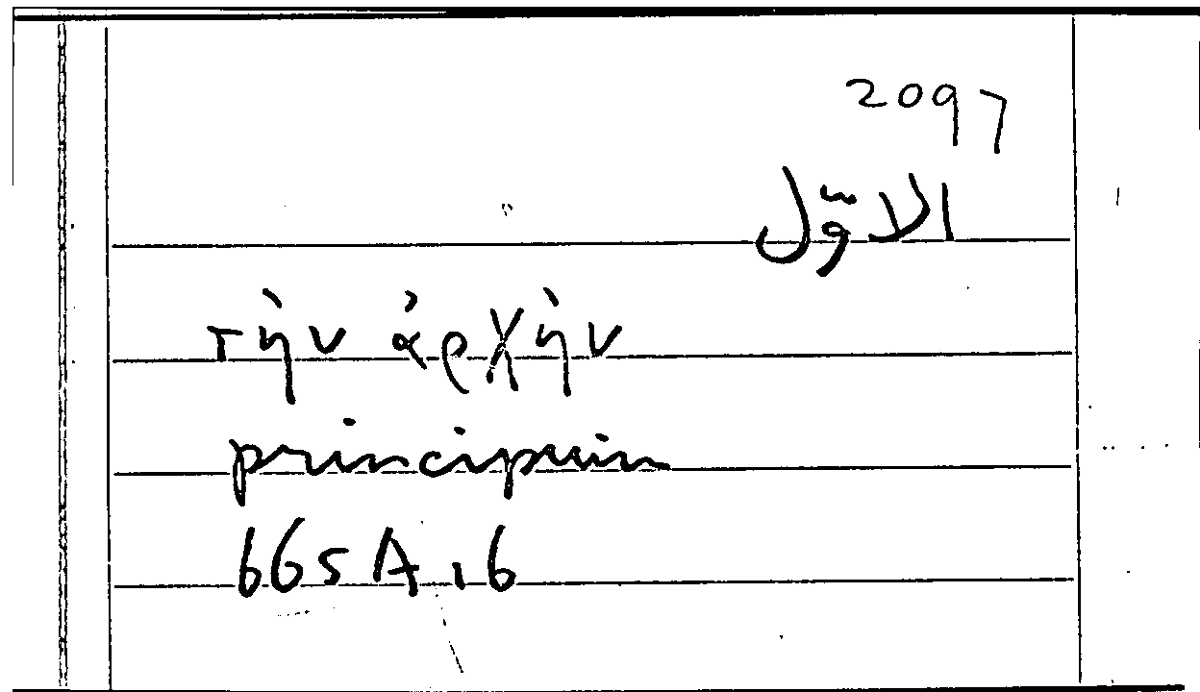 2097
الاوّل
τὴν ἀρχὴν
principium
665A16